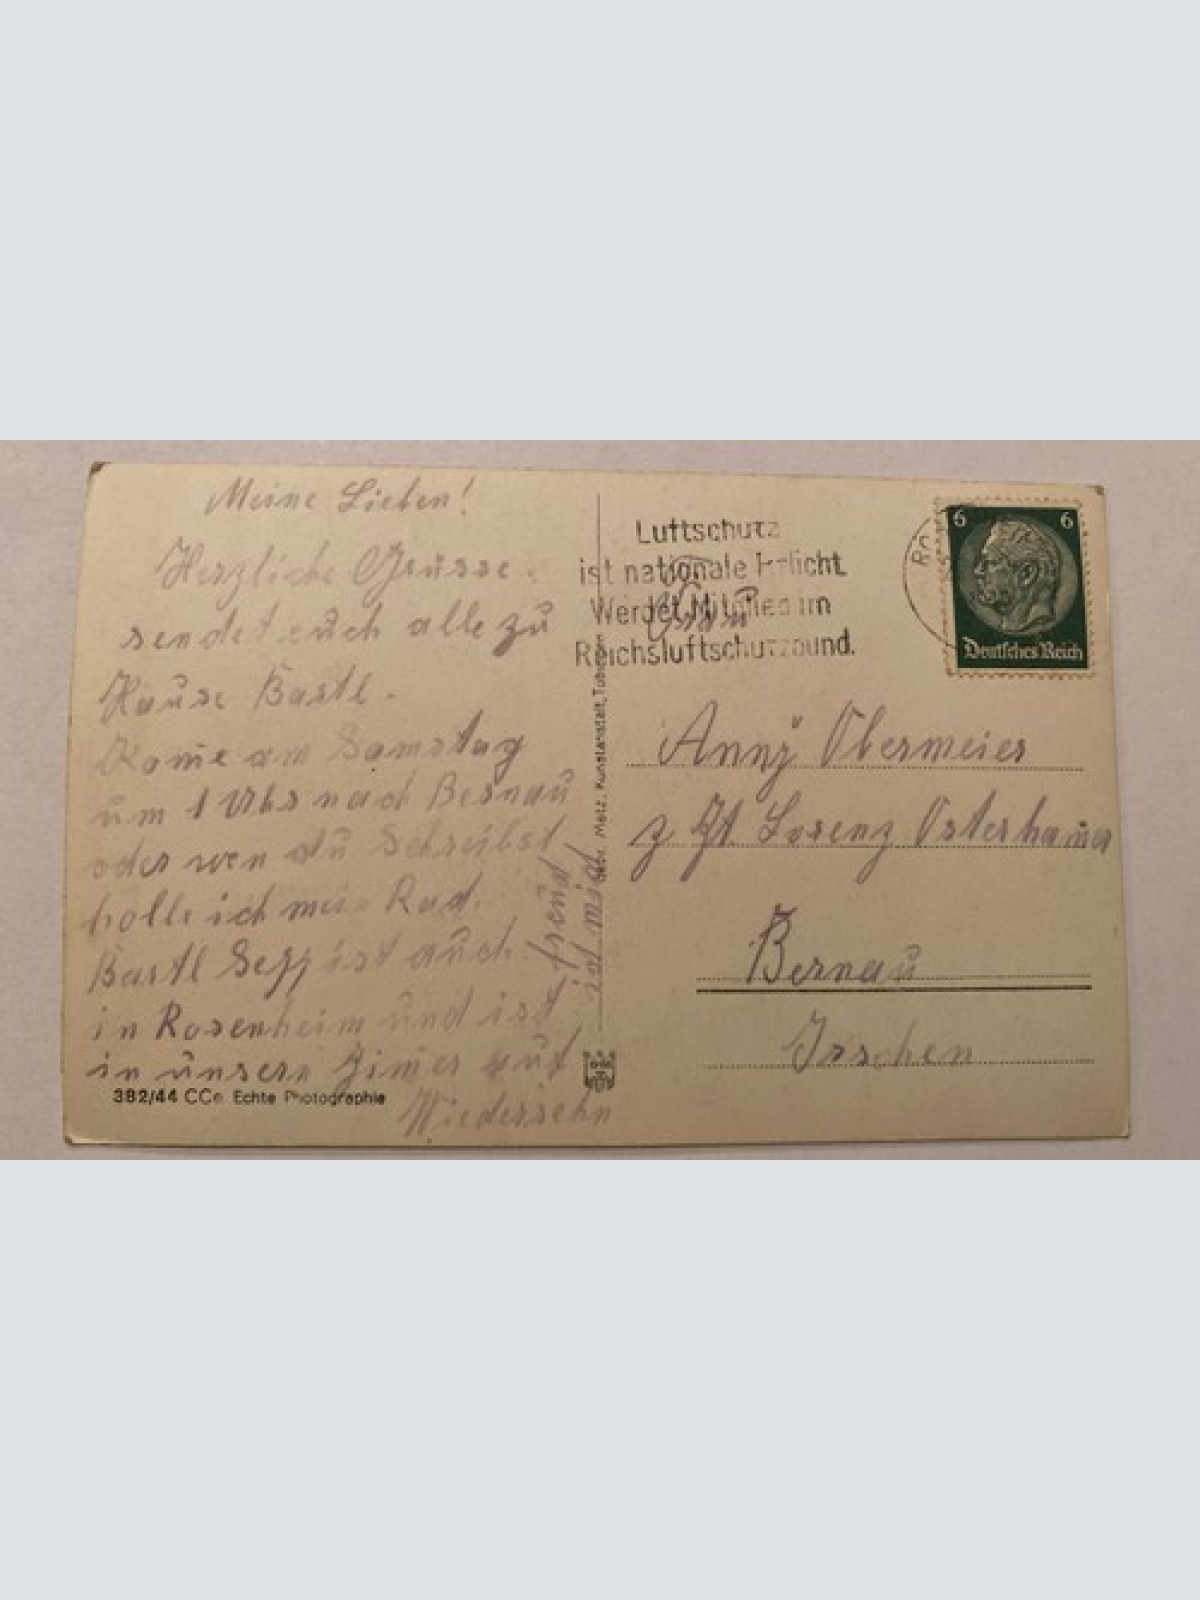 Meine Lieben!
Herzliche Grüsse.
sendet euch alle zu
Hause Bastl.
Kome am Samstag
um 1 Uhr nach Bernau
oder wen du Schreibst
holle ich mein Rad.
Bastl Sepp ist auch
in Rosenheim und ist
in unsern Zimer auf
Wiedersehn
freud
382/44 CCo Echte Photographie
Gebr. Metz, Kunstanstalt, Tübingen
Luftschutz
ist nationale Pflicht
Werdet Mitglied im
Reichsluftschutzbund.
6 6
Deutsches Reich
Frau
Anny Obermeier
z Zt. Lorenz Osterhamer
Bernau
Irschen